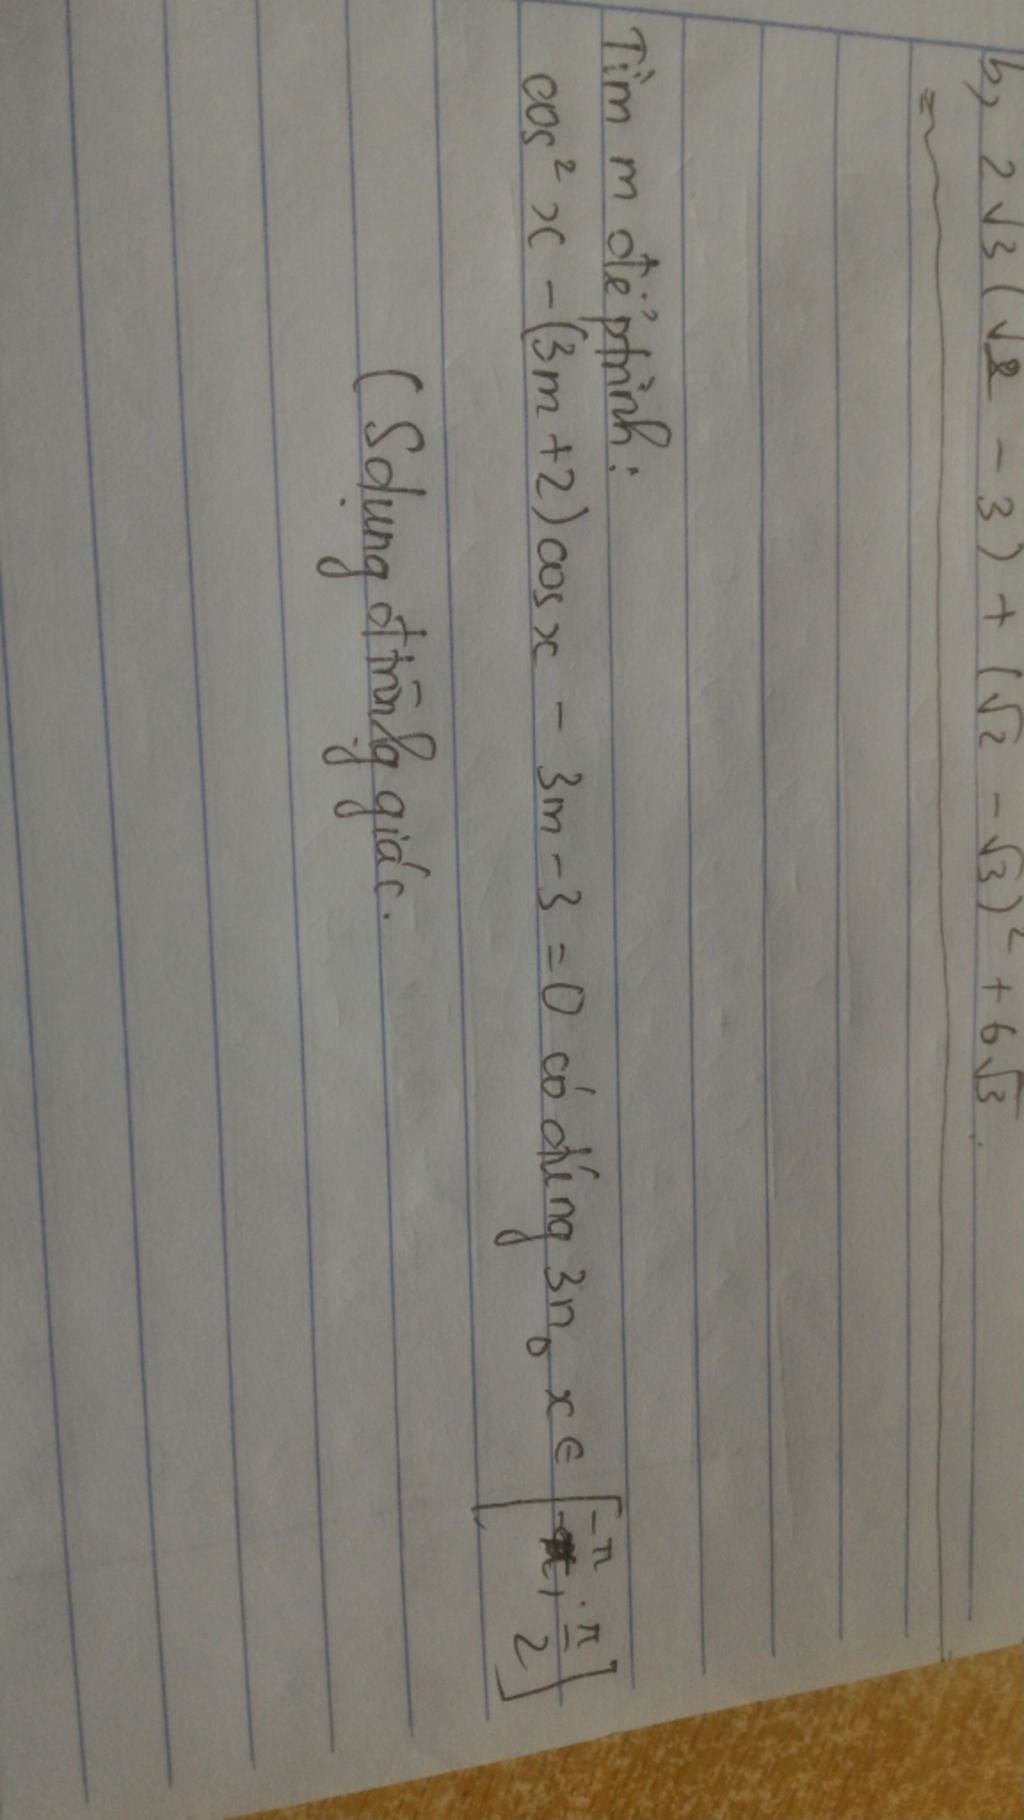 b, 2√3(√2 - 3) + (√2 - √3)² + 6√3.
=
Tìm m để ptrình:
cos²x - (3m+2)cosx - 3m - 3 = 0 có đúng 3n₀ x ∈ [-π; π/2]
(Sdụng đtròng giác.